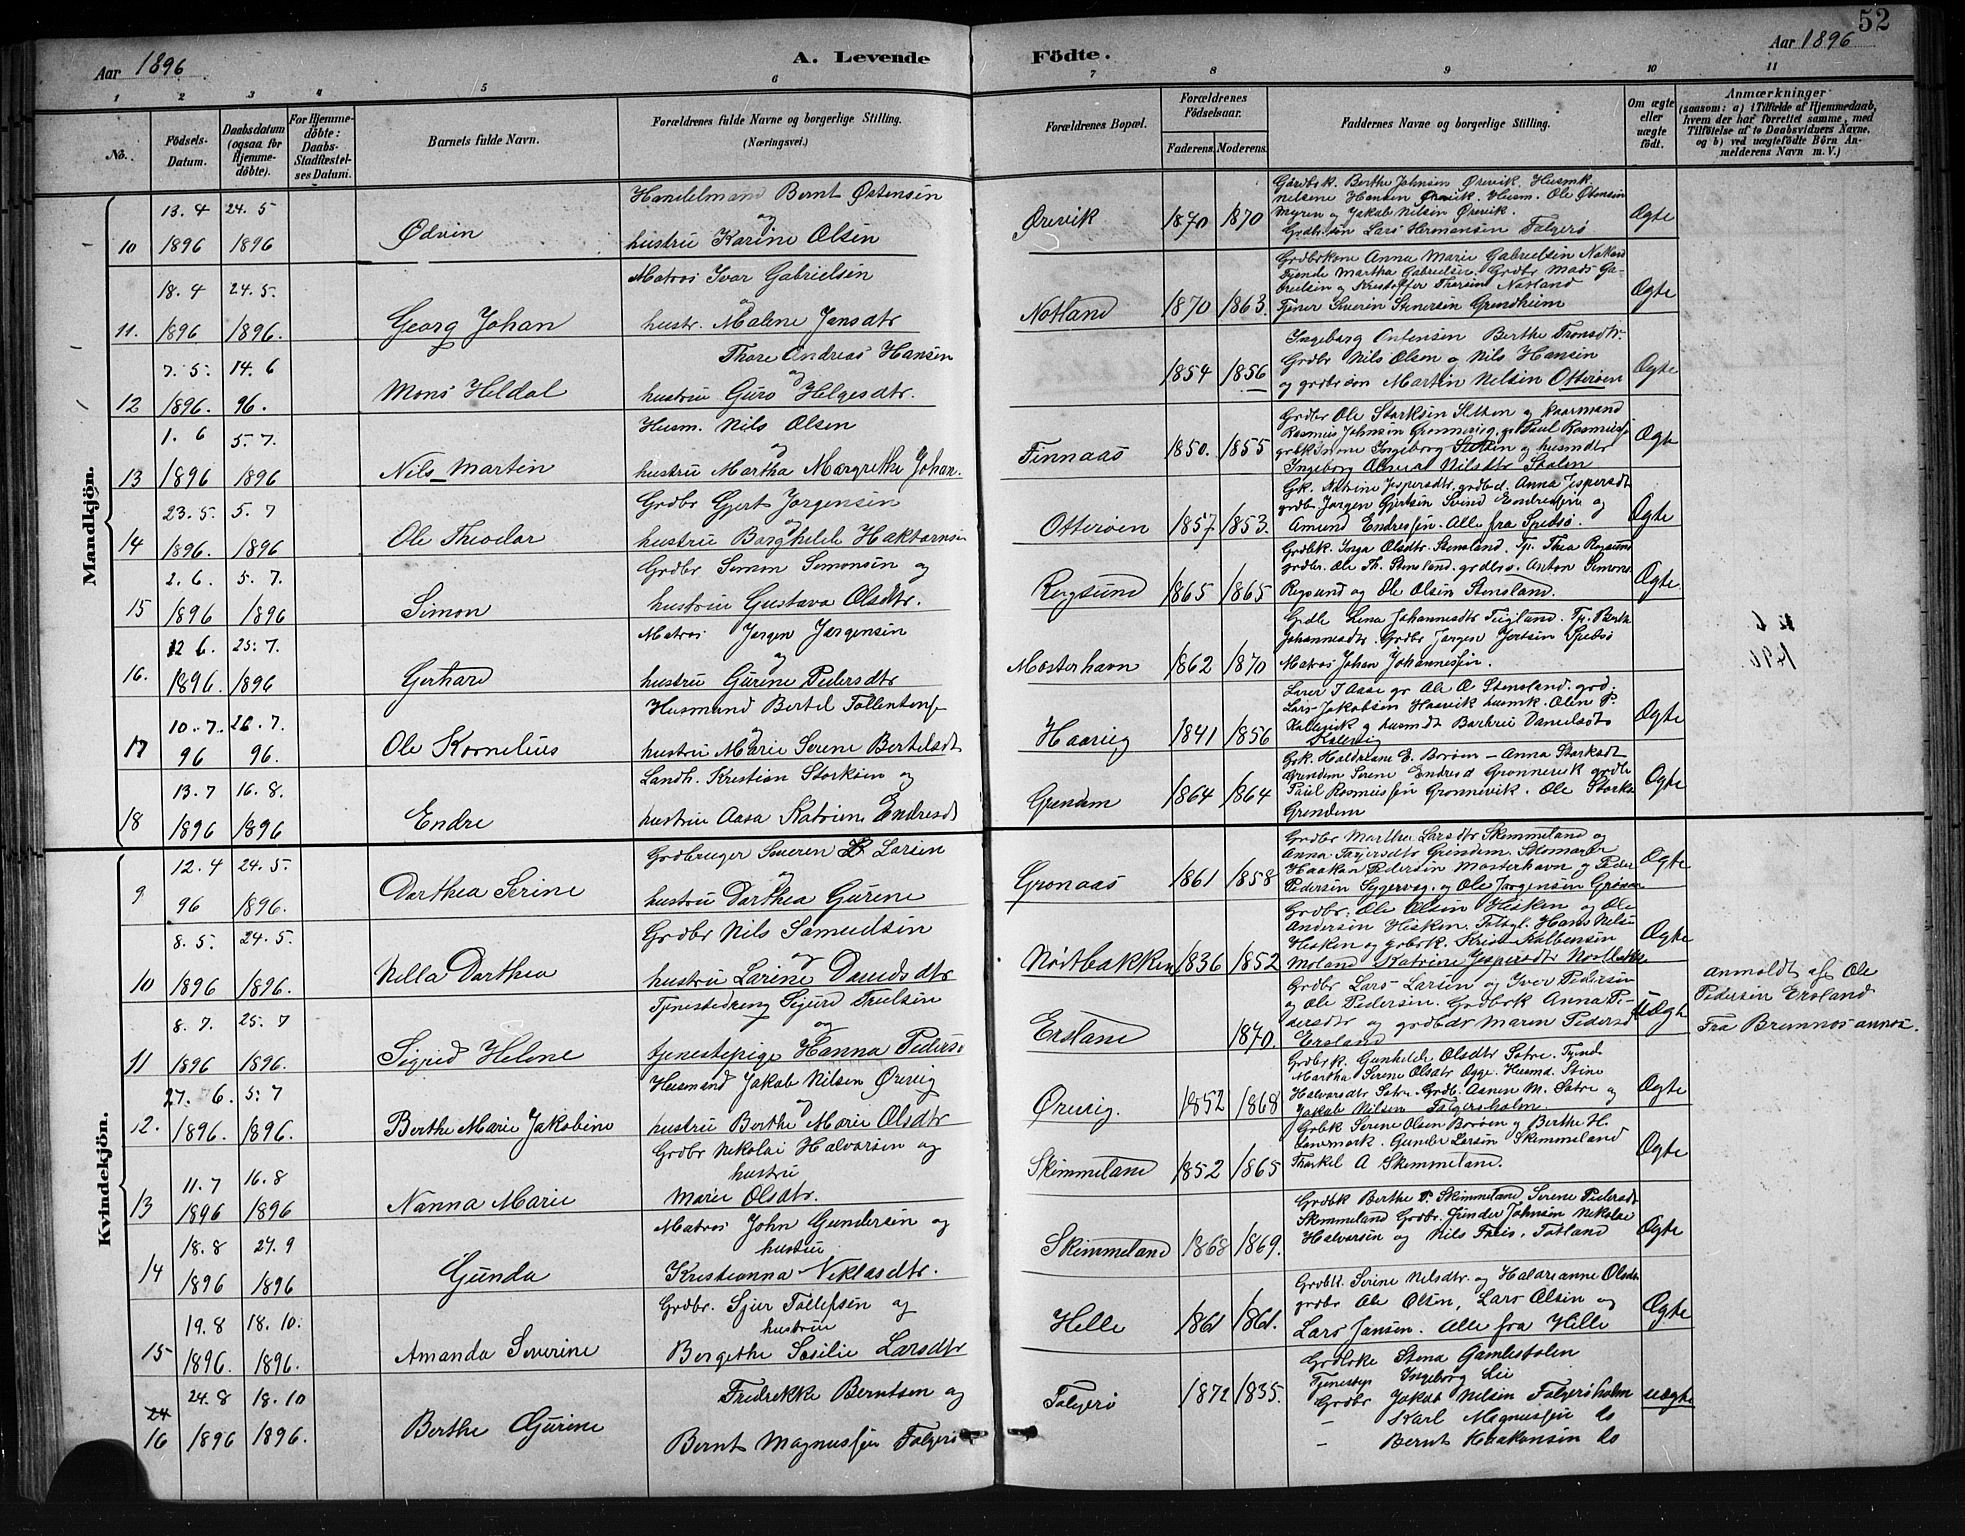 52
Aar 1896
A. Levende
Födte.
Aar 1896
1 2 3 4 5 6 7 8 9 10 11
No.
Födsels-
Datum.
Daabsdatum
(ogsaa for
Hjemme-
döbte).
For Hjemme-
döbte:
Daabs-
Stadfæstel-
ses Datum.
Barnets fulde Navn.
Forældrenes fulde Navne og borgerlige Stilling.
(Næringsvei.)
Forældrenes Bopæl.
Forældrenes
Födselsaar.
Faderens. Moderens.
Faddernes Navne og borgerlige Stilling.
Om ægte
eller
uægte
födt.
Anmærkninger
(saasom: a) i Tilfælde af Hjemmedaab,
hvem der har forrettet samme, med
Tilföielse af to Daabsvidners Navne,
og b) ved uægtefödte Börn An-
melderens Navn m. V.)
Mandkjön.
10
13. 4
1896
24. 5
1896
Ødvin
Handelmand Bernt Østensen
og
hustru Karine Olsen
Ørevik
1870
1870
Gårdbrk. Berthe Johnsen Ørevik. Husmk.
Nilsene Hansen Ørevik. Husm. Ole Østensen
Myren og Jakob Nilsen Ørevik.
Grdbrsøn Lars Hermansen Folgerø
Ægte
11.
18. 4
1896
24. 5.
1896.
Georg Johan
Matros Ivar Gabrielsen
og
hustr. Malene Jansdtr
Notland
1870
1863.
Grdbrkone Anna Marie Gabrielsen Notland
Tjende Martha Gabrielsen. Grdbr Mads Ga-
brielsen og Kristoffer Thorsen Notland
Tjener Severin Stenersen Grendheim
Ægte
12
7. 5.
1896.
14. 6
96.
Mons Heldal
Thore Andreas Hansen
og
hustru Guro Helgesdtr.
1854
1856
Ingeborg Antensen Berthe Tronsdtr.
Grdbr Nils Olsen og Nils Hansen
og grdbrsøn Martin Nelsen Otterøen
Ægte
13
1. 6
1896
5. 7.
1896
Nils Martin
Husm. Nils Olsen
og
hustru Martha Margrethe Johan.
Finnaas
1850.
1855
Grdbr Ole Storksen Sletten og
Rasmus Johnsen Grønnevig, gr Paul Rasmussen
Ingeborg Sletten og husmdtr
Ingeborg Nilsdtr Stølen
Ægte
14
23. 5.
1896.
5. 7
1896
Ole Theodor
Grdbr Gjert Jørgensen
og
hustru Borghild Haktornsen
Otterøen
1857
1853.
Gk. Katrine Jespersdtr. grdbrd. Anna Jespersdt
grdbr Jørgen Gjertsen Svend Endressen og
Amund Endressen. Alle fra Spidsø.
Ægte
15
2. 6.
1896
5. 7.
1896
Simon
Grdbr Simon Simonsen og
hustru Gustava Olsdtr.
Røgsund
1865
1865
Grdbk. Inga Olsdtr Stensland. Tp. Thea Røgsund
grdbr. Ole Th. Stensland. grdbrs. Anton Simons
Røgsund og Ole Olsen Stensland.
Ægte
16.
12 6.
1896.
25. 7.
1896
Gerhard
Matros Jørgen Jørgensen
og
hustru Gurine Pedersdtr
Mosterhavn
1862
1870
Grdk Lena Johannesdtr Teigland. Tp. Berth
Johannesdtr. Grdbr Jørgen Jertsen Spidsø
Matros Johan Johannessen.
Ægte
17
10. 7.
96
26. 7.
96.
Ole Kornelius
Husmand Bertel Tollentens
og
hustru Marie Serene Bertelsdt
Haavig
1841
1856
Lærer T Aase gr Ole O Stensland. grd.
Lars Jakobsen Haavik husmk. Olen P.
Kallevik og husmdt Barbrie Danielsdt
Kallevig
Ægte
18
13. 7
1896
16. 8.
1896
Endre
Landh. Kristian Storksen og
hustru Aasa Katrine Endresdt
Grendem
1864
1864
Grk. Haldriane E. Borøen – Anna Storksdt
Grendem Serene Endresd Grønnevik grdbr
Paul Rasmussen Grønnevik. Ole Storks
Grendem
Ægte
Kvindekjön.
9
12. 4
96
24. 5.
1896.
Dorthea Serine
Grdbruger Severen Larsen
og
hustru Dorthea Gurine
Gronaas
1861
1858
Grdbr Marthe Larsdtr Skimmeland og
Anna Tarjersdtr Grendem.
Haakon Pedersen Mosterhavn og Peder
Pedersen Siggervåg. og Ole Jørgensen Grønaas
Ægte
10
8. 5.
1896
24. 5.
1896.
Nilla Dorthea
Grdbr Nils Samudsen
og
hustru Larine Davidsdtr
Nordtbakken
1836
1852
Grdbr. Ole Olsen Hisken og Ole
Andersen Hisken. Hans Nilsen
Hisken og grdbrk.
Moland Katrine Jespersdtr
Ægte
11
8. 7.
1896
25. 7
1896.
Sigrid Helene
Tjenestedreng Sigurd Truelsen
og
tjenestepige Hanna Pedersd
Ersland
1870.
Grdbr Lars Larsen og Iver Pedersen
og Ole Pedersen. Grdbrk Anna Pe-
dersdtr og grdbrdr Maren Pedersd
Ersland
Uægte
Anmeldt af Ole
Pedersen Ersland
Fra Bremnes annex.
12.
27. 6.
1896.
5. 7
1896.
Berthe Marie Jakobine
Husmand Jakob Nilsen Ørevig
og
hustru Berthe Marie Olsdtr
Ørevig.
1852
1868
Grdbrk. Gunhilde Olsdtr Satre. Tjend.
Martha Serene Olsdtr Ogge. Husmd. Stine
Halvorsdtr Satre. Grdb. Aanen M. Satre og
Jakob Nilsen Folgerøholm
Ægte
13
11. 7
1896
16. 8
1896
Nanna Marie
Grdbr Nikolai Halvorsen og
hustru
Marie Olsdtr.
Skimmeland
1852
1865
Grbk Serene Olsen Borøen og Berthe H.
Danemark. Gunder Larsen Skimmeland
Thorkel A Skimmeland.
Ægte
14
18. 8
1896
27. 9
1896
Gunda
Matros John Gundersen og
hustru
Kristianna Niklasdtr.
Skimmeland
1868
1869.
Grdbk Berthe P. Skimmeland, Serene Pedersdt
Skimmeland Grdbr. Gunder Johnsen Nikolai
Halvorsen og Nils Totland
Ægte
15
19. 8
1896.
18. 10.
1896.
Amanda Severine
Grdbr. Sjur Tollefsen og
hustru
Bergethe Sesilie Larsdtr
Helle
1861
1861.
Grdbk. Serine Nilsdtr. og Haldrianne Olsdt
grdbr Ole Olsen, Lars Olsen og
Lars Jansen. Alle fra Hille
Ægte
24
16
24. 8
1896
18. 10
1896.
Berthe Gurine
Fredrekke Berntsen og
Bernt Magnussen Folgerø
Folgerø
1872
1835.
Grdbrke Stena Gamlestolen
Tjenestep Ingeborg Lie
Grdbr Jakob Nilsen Folgerøholm
– Karl Magnussen do
– Bernt Haakonsen do
uægte